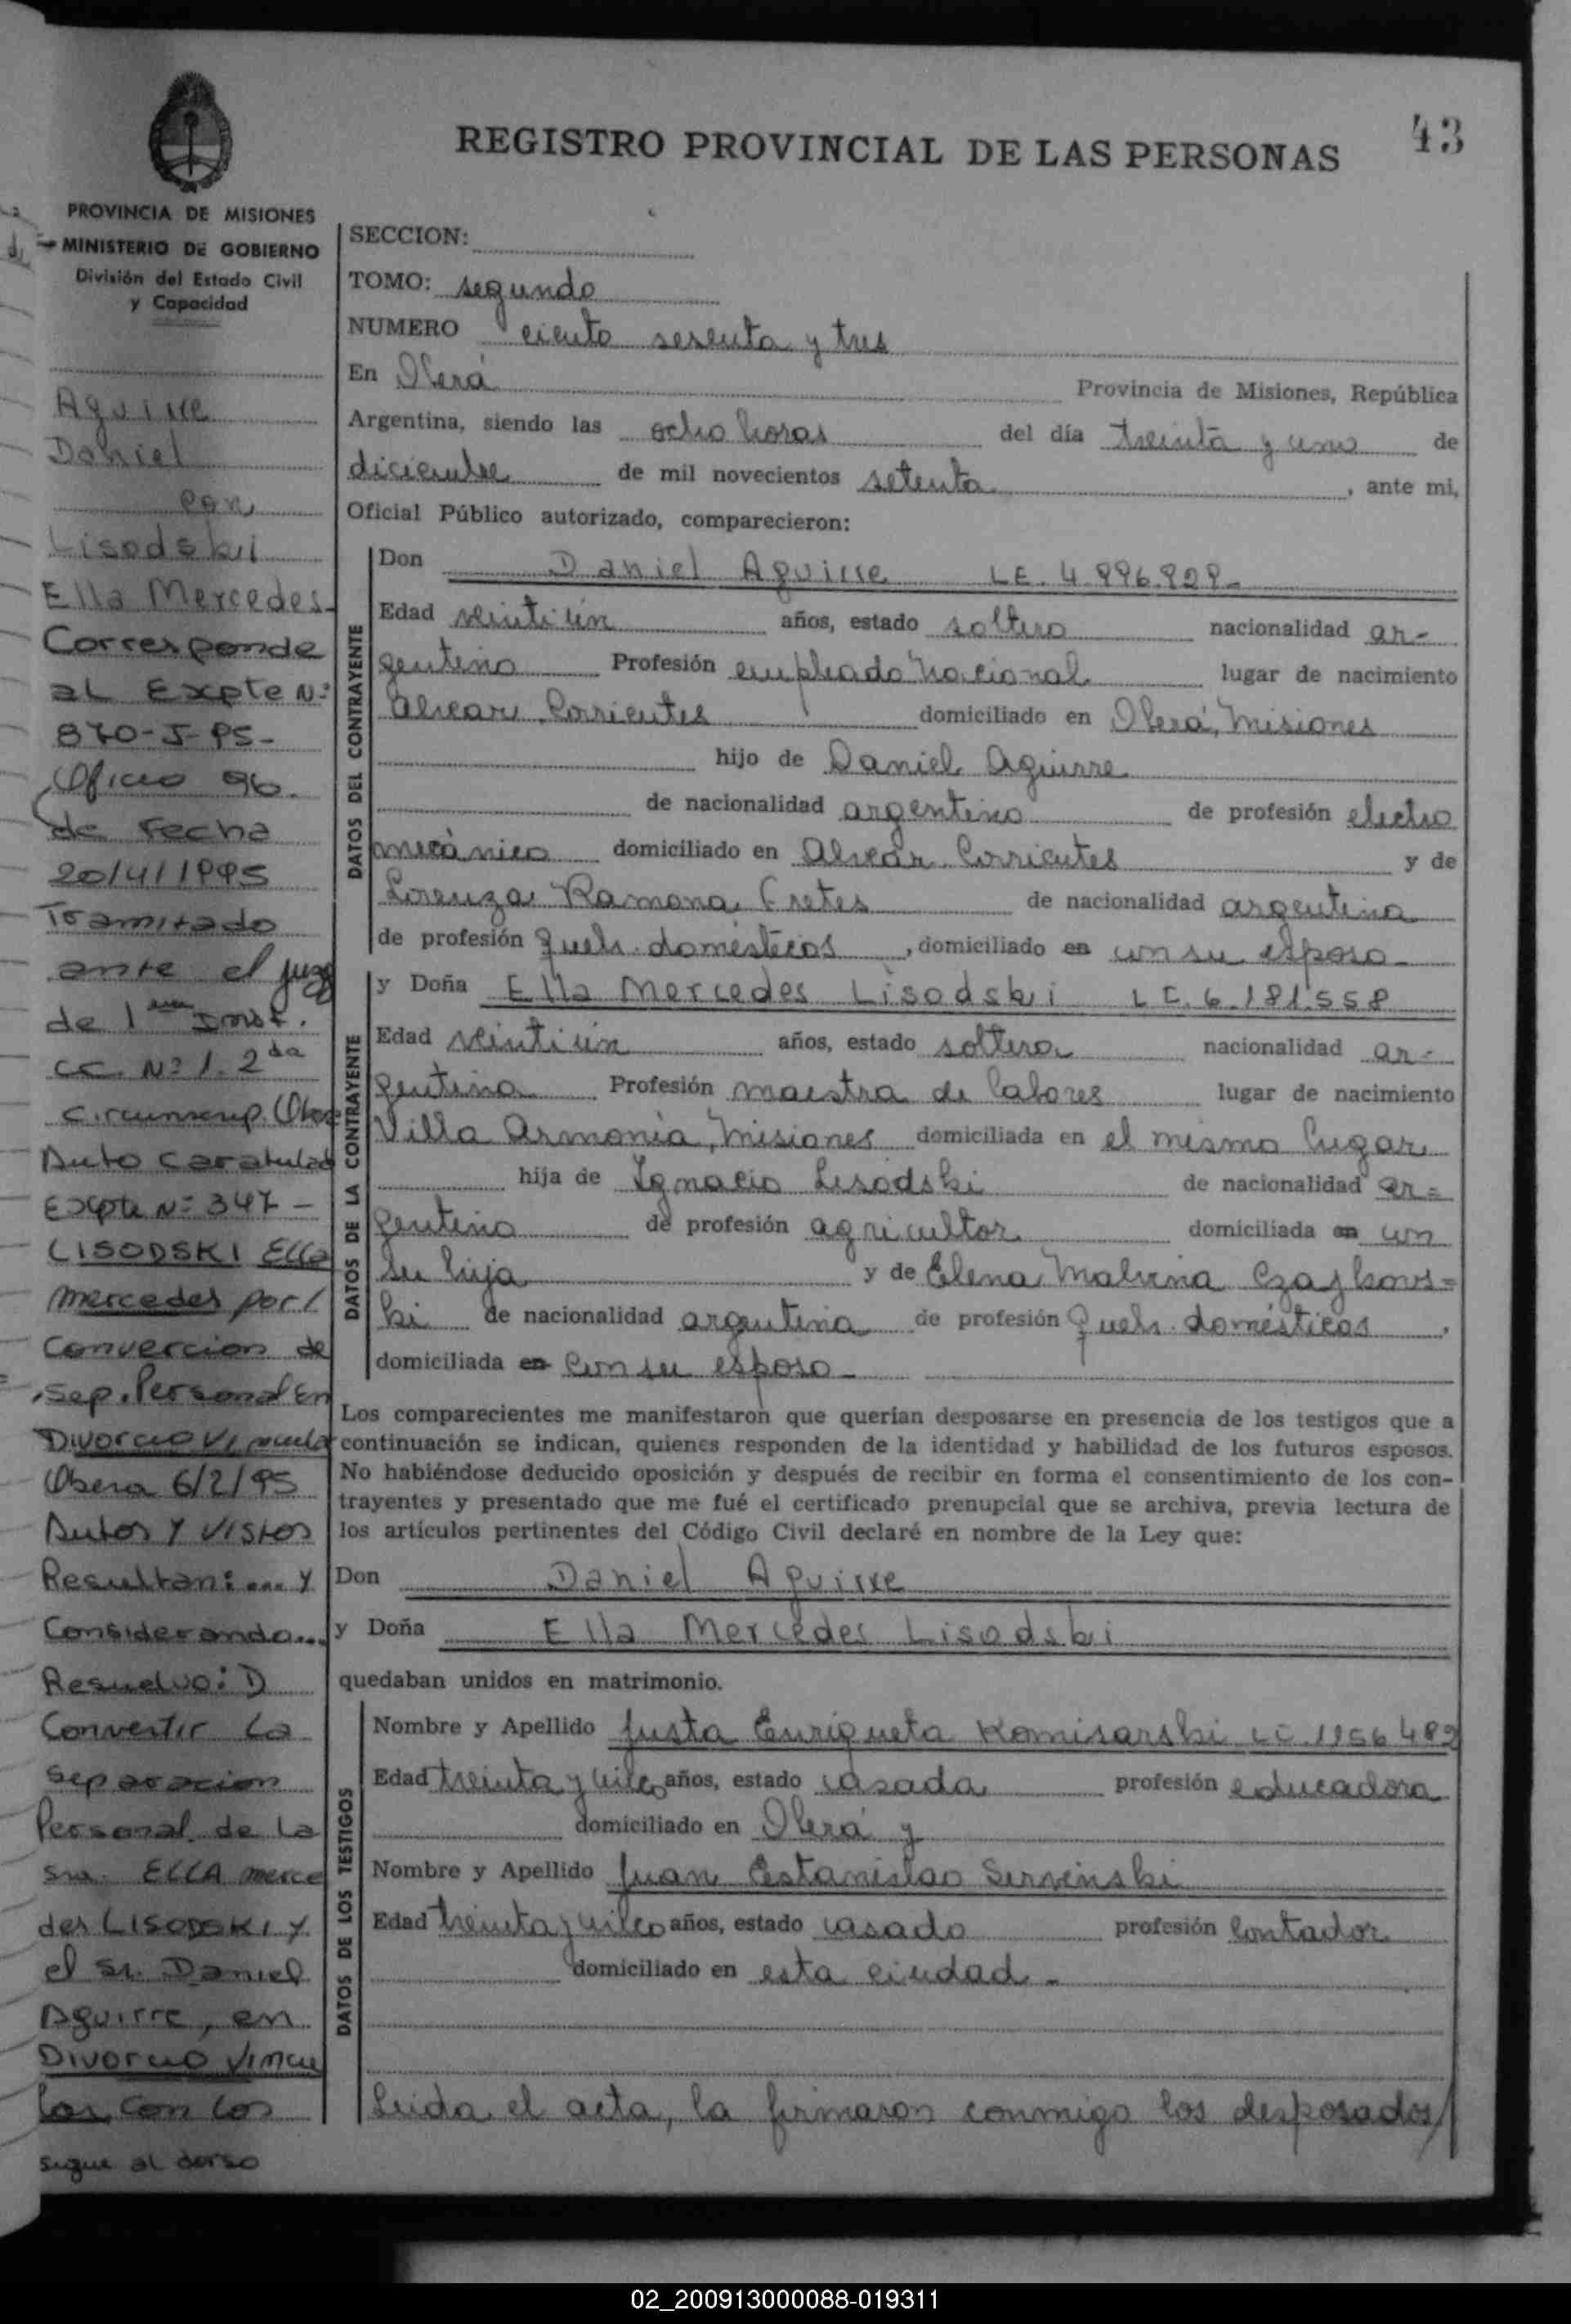 43
REGISTRO PROVINCIAL DE LAS PERSONAS
PROVINCIA DE MISIONES
MINISTERIO DE GOBIERNO
División del Estado Civil
y Capacidad
Aguirre
Daniel
con
Lisodski
Ella Mercedes
Corresponde
al Expte Nº
870-J-95-
Oficio 96.
de Fecha
20/4/1995
Tramitado
ante el juzg
de 1era Inst.
CC. Nº 1. 2da
circunscrip. (Obera
Auto Caratulad
Expte Nº 347 -
LISODSKI Ella
Mercedes por/
Convercion de
Sep. Personal En
Divorcio Vincular
Obera 6/2/95
Autos Y Vistos
Resultan: ... Y
Considerando...
Resuelvo: I)
Convertir La
separacion
Personal de La
Sra. ELLA Merce
des LISODSKI Y
el Sr. Daniel
Aguirre, en
Divorcio Vincu
lar con los
sigue al dorso
SECCION:
TOMO: segundo
NUMERO ciento sesenta y tres
En Oberá Provincia de Misiones, República
Argentina, siendo las ocho horas del día treinta y uno de
diciembre de mil novecientos setenta, ante mi,
Oficial Público autorizado, comparecieron:
DATOS DEL CONTRAYENTE
Don Daniel Aguirre LE. 4.996.929-
Edad veintiún años, estado soltero nacionalidad ar-
gentino Profesión empleado nacional lugar de nacimiento
Alvear, Corrientes domiciliado en Oberá, Misiones
hijo de Daniel Aguirre
de nacionalidad argentino de profesión electro
mecánico domiciliado en Alvear Corrientes y de
Lorenza Ramona Fretes de nacionalidad argentina
de profesión queh. domésticos, domiciliado en con su esposo-
DATOS DE LA CONTRAYENTE
y Doña Ella Mercedes Lisodski LC. 6.181.558
Edad veintiún años, estado soltera nacionalidad ar-
gentina Profesión maestra de labores lugar de nacimiento
Villa Armonía, Misiones domiciliada en el mismo lugar
hija de Ignacio Lisodski de nacionalidad ar=
gentino de profesión agricultor domiciliada en con
su hija y de Elena Malvina Czajkows=
ki de nacionalidad argentina de profesión queh. domésticos,
domiciliada en con su esposo-
Los comparecientes me manifestaron que querían desposarse en presencia de los testigos que a
continuación se indican, quienes responden de la identidad y habilidad de los futuros esposos.
No habiéndose deducido oposición y después de recibir en forma el consentimiento de los con-
trayentes y presentado que me fué el certificado prenupcial que se archiva, previa lectura de
los artículos pertinentes del Código Civil declaré en nombre de la Ley que:
Don Daniel Aguirre
y Doña Ella Mercedes Lisodski
quedaban unidos en matrimonio.
DATOS DE LOS TESTIGOS
Nombre y Apellido Justa Enriqueta Komisarski LC. 1956482
Edad treinta y cinco años, estado casada profesión educadora
domiciliado en Oberá y
Nombre y Apellido Juan Estanislao Servinski
Edad treinta y cinco años, estado casado profesión contador
domiciliado en esta ciudad-
Leida el acta, la firmaron conmigo los desposados/
02_200913000088-019311